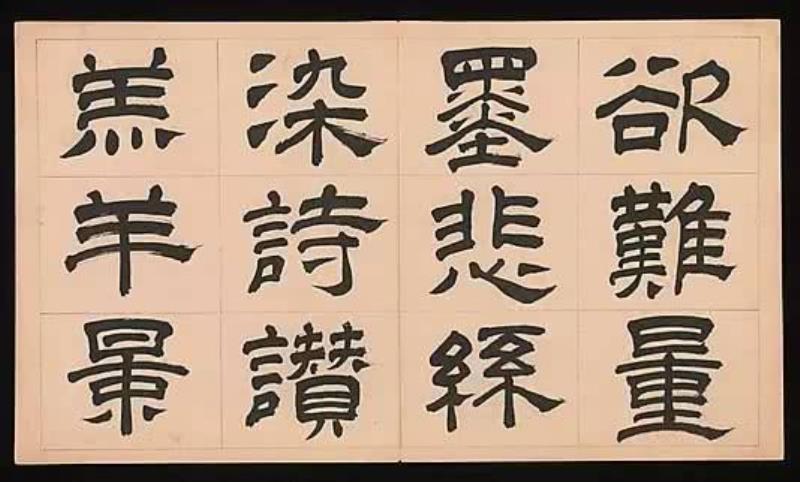 欲難量
墨悲絲
染詩讃
羔羊景